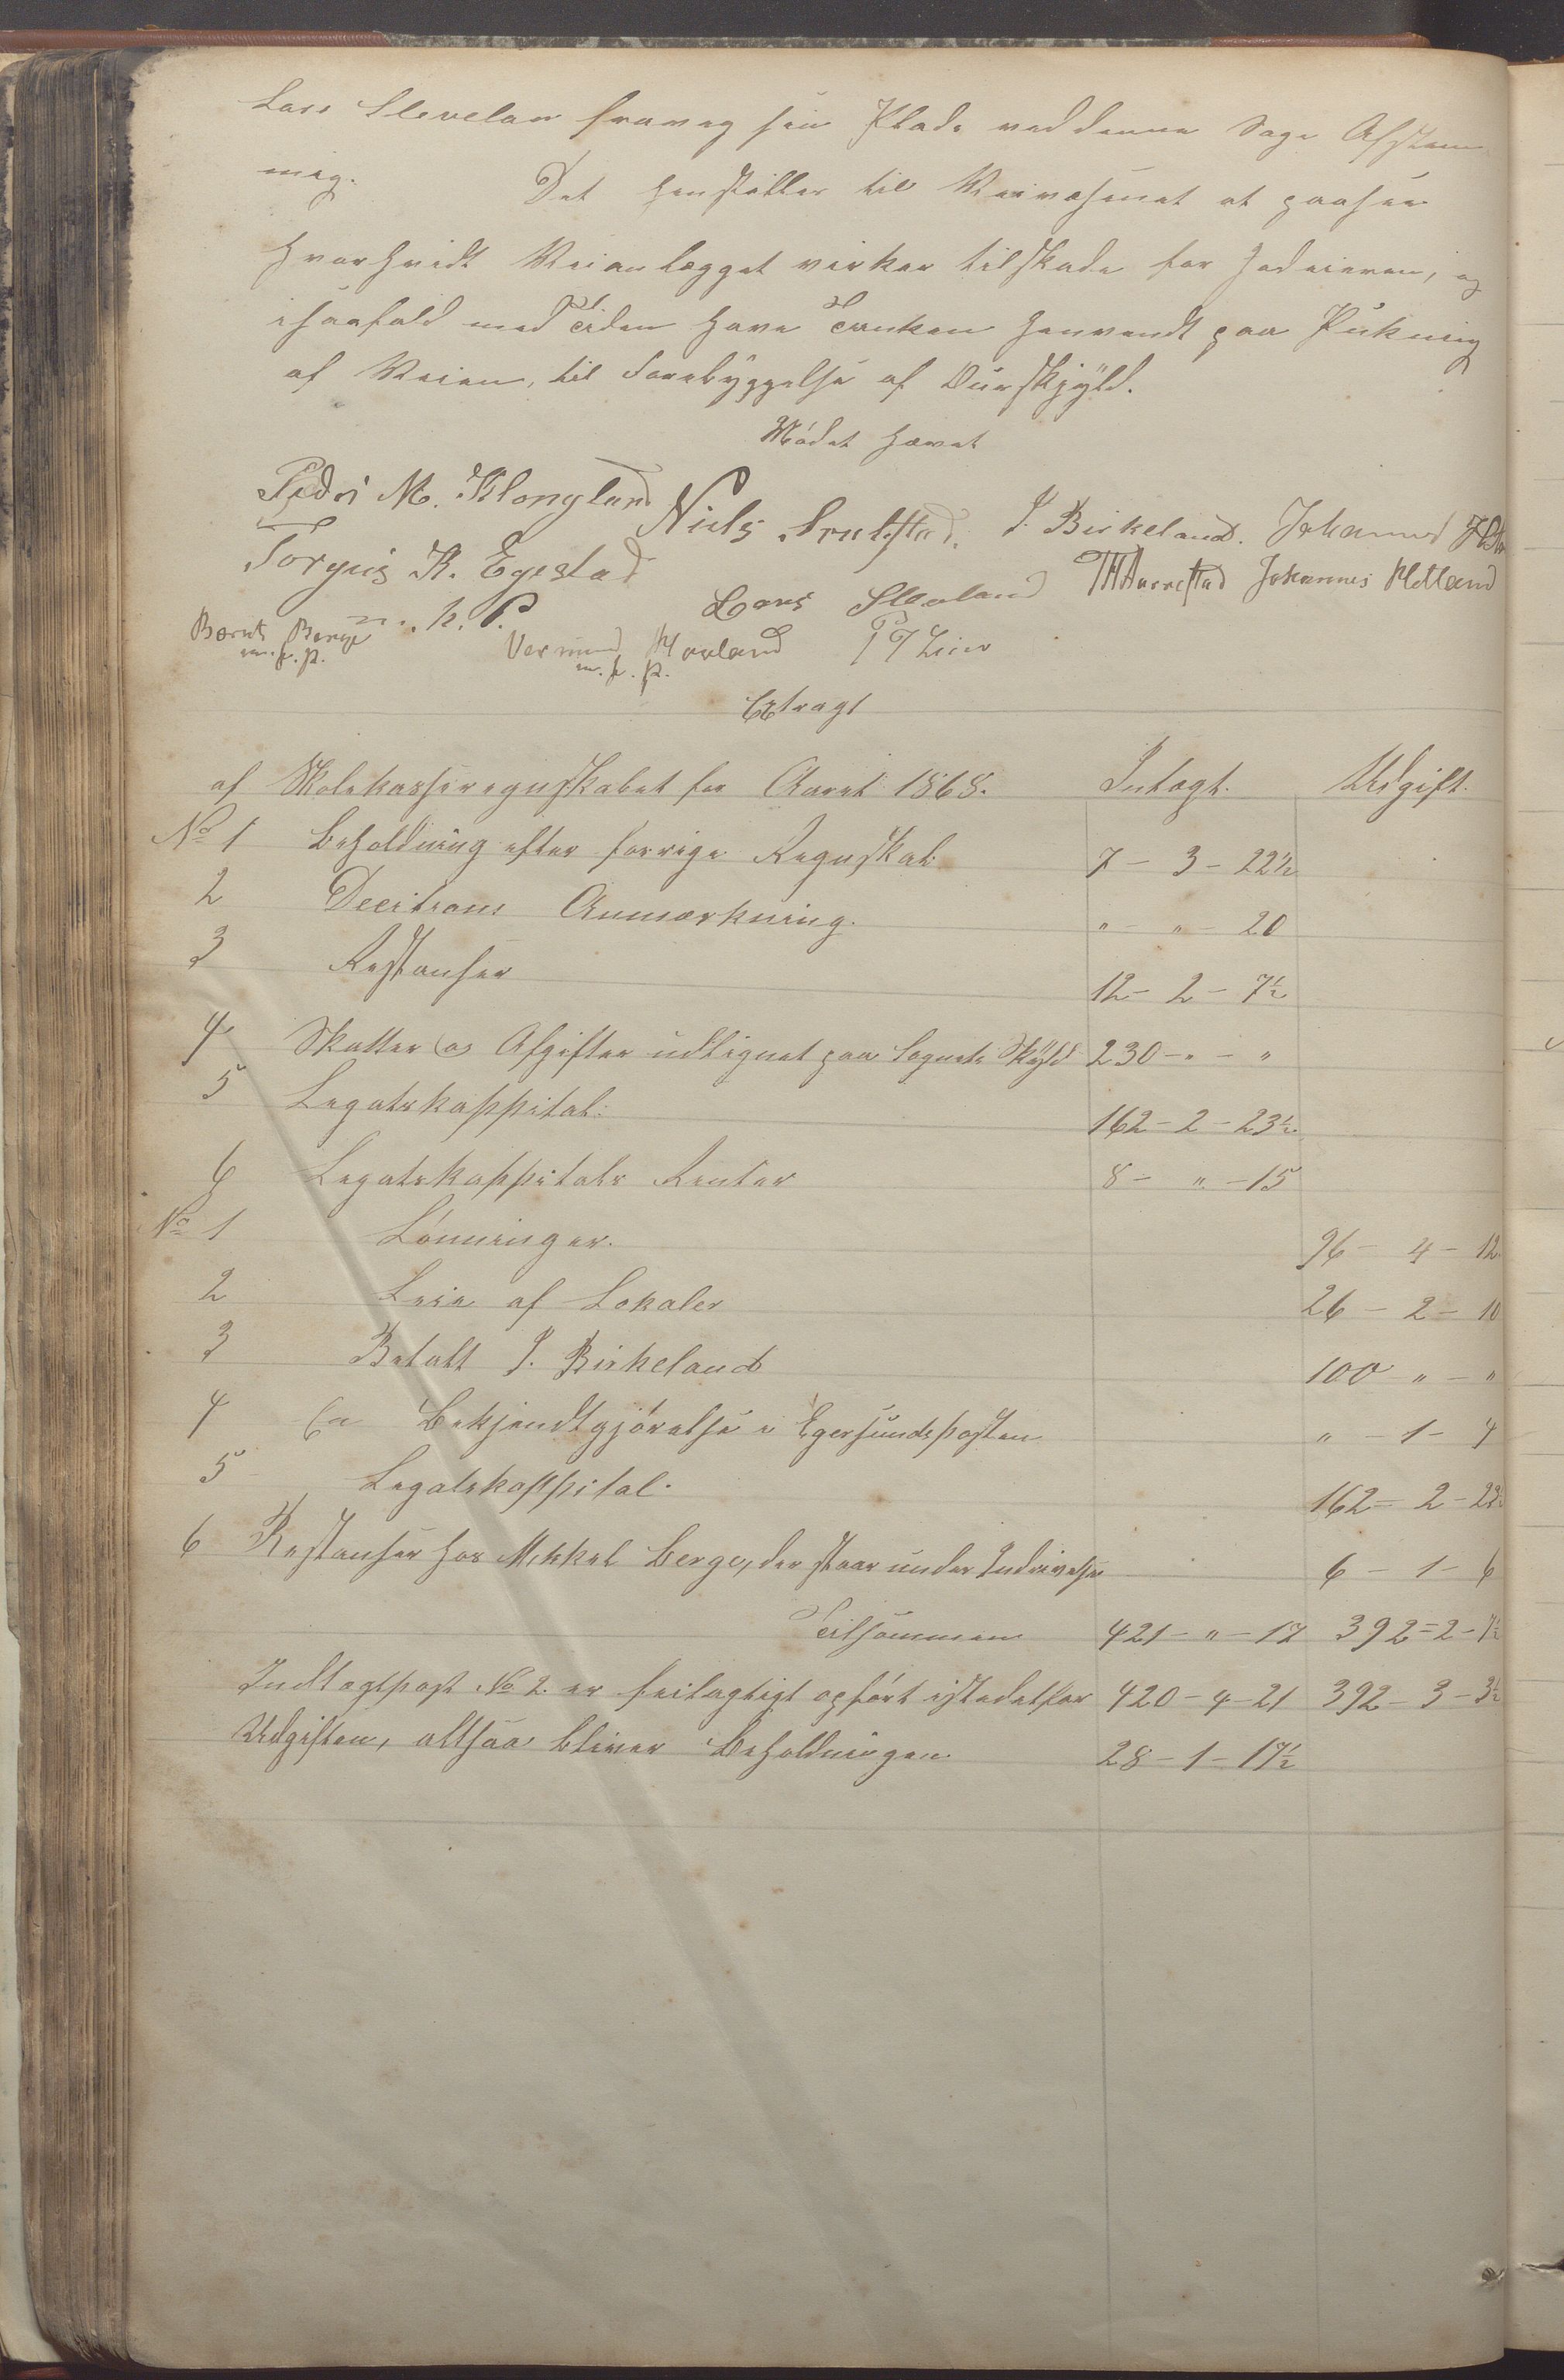 Lars Slevelan fraveg sin Plads ved denne Sags Afstem
ning. Det henstilles til Veivæsenet at paasee
hvorhvidt Veianlægget virker tilskade for Jordeieren, og
isaafald med Tiden have Tanken henvendt paa Pukning
af Veien, til Forebyggelse af Vurskyld.
Mødet hævet
Peder M. Klongland Niels Arrestad. J. Birkeland. Johannes
Torgus K. Egestad Lars Slevland TH Aarrestad Johannes Hetland
m. f. P.
Bernt Berge Vermund Hovland T T Lien
m. f. p. m. f. p.
Extragt
af Skolekasseregnskabet for Aaret 1868. Intægt. Udgift.
No 1 Beholdning efter forrige Regnskab 7 - 3 - 22½
2 Decitions Anmærkning. " - " - 20
3 Restanser 12 - 2 - 7½
4 Skatter og Afgifter udlignet paa Sognets Skyld 230 - " - "
5 Legatskappital: 162 - 2 - 23½
6 Legatskappitals Renter 8 - " - 15
No 1 Lønninger. 96 - 4 - 12
2 Leie af Lokaler 26 - 2 - 10
3 Betalt J. Birkeland 100 " - "
4 En Bekjendtgjørelse i Egersundsposten " - 1 - 4
5 Legatskappital. 162 - 2 - 23½
6 Restanser hos Mikkel Berge, der staar under Inddrivelse 6 - 1 - 6
Tilsammen 421 - " - 17 392 = 2 - 7½
Indtægtspost No 2. er feilagtigt opført istedetfor 420 - 4 - 21 392 - 3 - 3½
Udgiften, altsaa bliver Beholdningen 28 - 1 - 17½